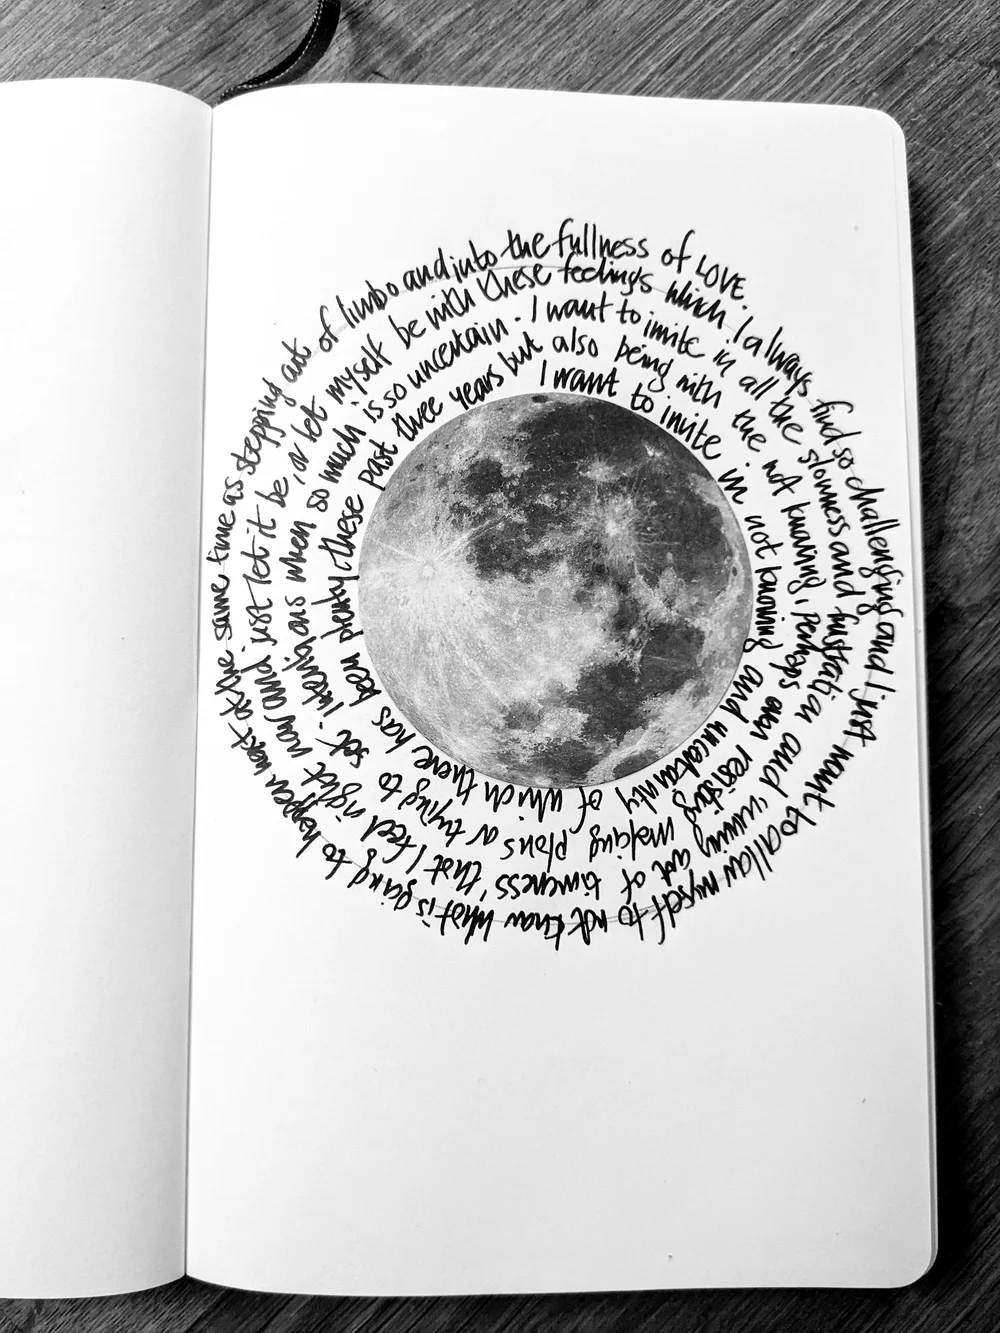 I want to invite in not knowing and uncertainty of which there has been plenty these past three years but
also being with the not knowing, perhaps even resisting making plans or trying to set intentions when so much is so uncertain.
I want to invite in all the slowness and frustration and 'running out of timeness' that I feel right now and just let it be, or let myself be with these
feelings which I always find so challenging and I just want to allow myself to not know what is going to happen next at the same time as stepping out of limbo and into the fullness of LOVE.